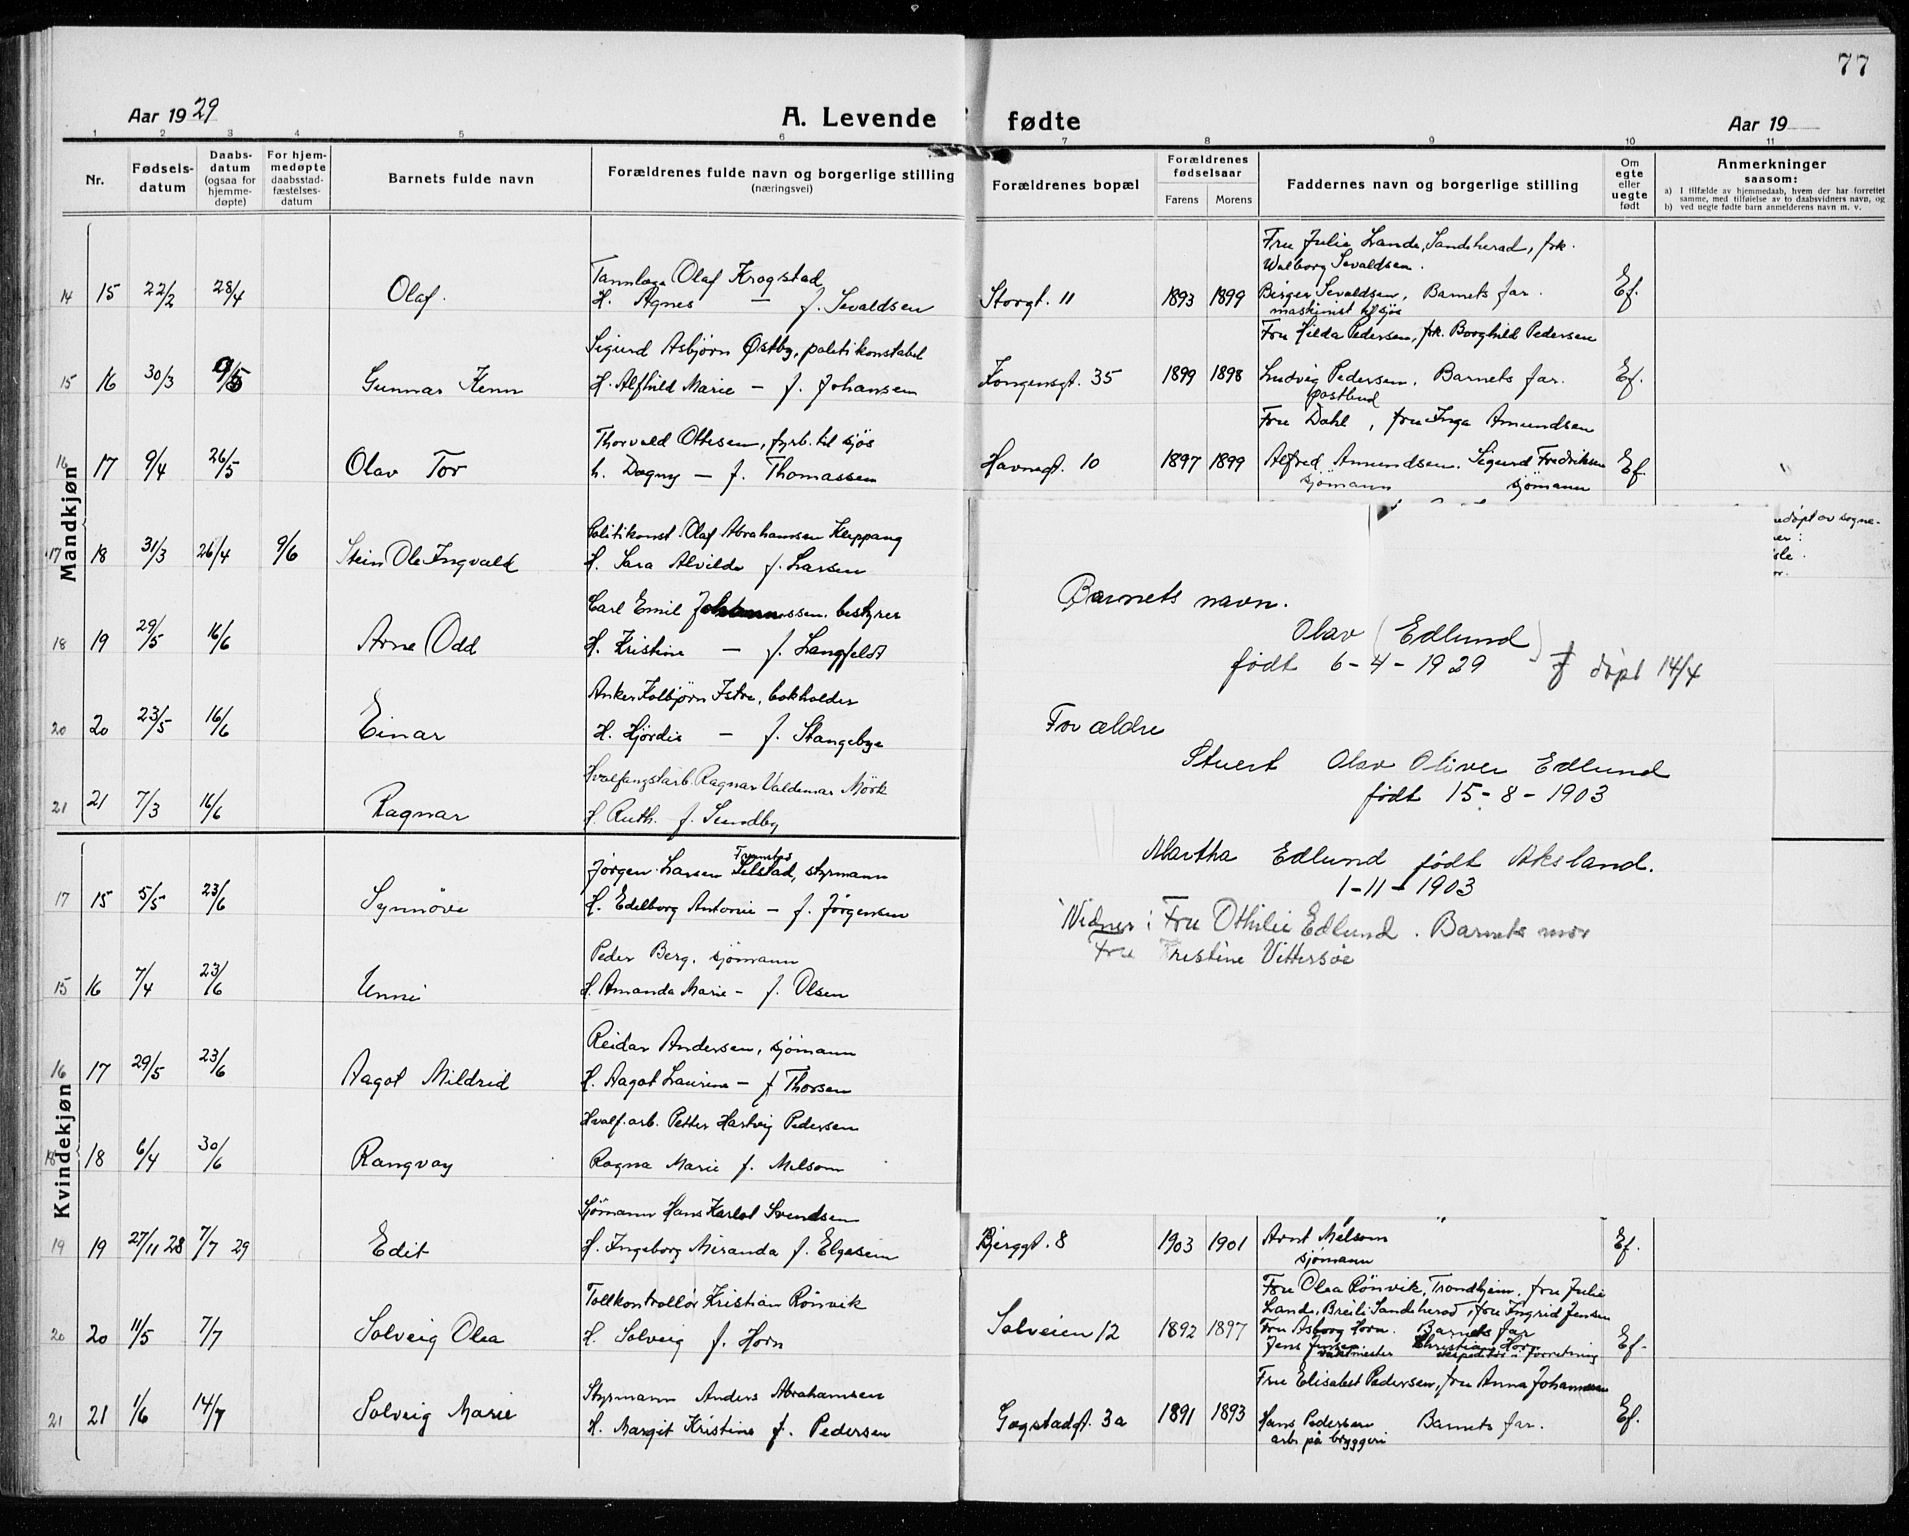 77
Aar 1929
A. Levende fødte
Aar 19
1 2 3 4 5 6 7 8 9 10 11
Nr.
Fødsels-
datum
Daabs-
datum
(ogsaa for
hjemme-
døpte)
For hjem-
medøpte
daabsstad-
fæstelses-
datum
Barnets fulde navn
Forældrenes fulde navn og borgerlige stilling
(næringsvei)
Forældrenes bopæl
Forældrenes
fødselsaar
Farens Morens
Faddernes navn og borgerlige stilling
Om
egte
eller
uegte
født
Anmerkninger
saasom:
a) I tilfælde av hjemmedaab, hvem der har forrettet
samme, med tilføielse av to daabsvidners navn, og
b) ved uegte fødte barn anmelderens navn m. v.
Mandkjøn
Fru Julie Lande, Sandeherad, frk.
Walborg Sevaldsen.
Tannlæge Olaf Krogstad
14 15 22/2 28/4 Olaf. H. Agnes — f. Sevaldsen Storgt. 11 1893 1899 Birger Sevaldsen, Barnets far. Ef.
maskinist til sjøs
Sigurd Asbjørn Østby, politikonstabel Fru Hilda Pedersen, frk. Borghild Pedersen
15 16 30/3 9/5 Gunnar Kenn H. Alfhild Marie — f. Johansen Kongensgt. 35 1899 1898 Ludvig Pedersen. Barnets far. Ef.
postbud
Thorvald Ottesen, fyrb. til sjøs Fru Dahl, fru Inga Amundsen
16 17 9/4 26/5 Olav Tor h. Dagny — f. Thomassen Havnegt. 10 1897 1899 Alfred Amundsen. Sigurd Fredriksen Ef.
sjømann sjømann
Politikonst. Olaf Abrahamsen Kleppang
17 18 31/3 26/4 9/6 Stein Ole Ingvald H. Sara Alvilde f. Larsen
Carl Emil Johannessen. bestyrer
18 19 29/5 16/6 Arne Odd H. Kristine — f. Langfeldt
Anker Kolbjørn Istre, bokholder
20 20 23/5 16/6 Einar H. Hjørdis — f. Stangebye
Hvalfangstarb. Ragnar Valdemar Mörk
21 21 7/3 16/6 Ragnar H. Ruth. f. Sundby
døpt av sogne-
Barnets navn.
Olav (Edlund)
født 6-4-1929 døpt 14/4
Forældre
Stuert Olav Oliver Edlund
født 15-8-1903
Martha Edlund født Aksland.
1-11-1903
Vidner: Fru Othilie Edlund. Barnets mor
Fru Kristine Vittersøe
Kvindekjøn
Jørgen Larsen Selstad, styrmann
17 15 5/5 23/6 Synnöve H. Edelborg Antonie — f. Jørgensen
Peder Berg, sjømann
15 16 7/4 23/6 Unni H. Amanda Marie — f. Olsen
Reidar Andersen, sjømann
16 17 29/5 23/6 Aagot Mildrid H. Aagot Laurine — f Thorsen
Hvalf. arb. Petter Hartvig Pedersen
18 18 6/4 30/6 Rangvay Ragna Marie f. Melsom
Sjømann Hans Karlot Svendsen
19 19 27/11 28 7/7 29 Edit H. Ingeborg Miranda f. Elgesem Bjerggt. 8 1903 1901 Arnt Melsom Ef.
sjømann
Fru Olea Rönvik, Trondhjem, fru Julie
Tollkontrollör Kristian Rönvik Lande, Breili Sandeherad, fru Ingrid Jensen
20 20 11/5 7/7 Solveig Olea H. Solveig f. Horn Solveien 12 1892 1897 Fru Asborg Horn. Barnets far Ef.
Jens Jensen Christian Horn
vaktmester ekspeditör i forretning
Styrmann Anders Abrahamsen Fru Elisabet Pedersen, fru Anna Johannesen
21 21 1/6 14/7 Solveig Marie H. Margit Kristine f. Pedersen Gogstadgt. 3a 1891 1893 Hans Pedersen Barnets far. Ef.
arb. på bryggeri